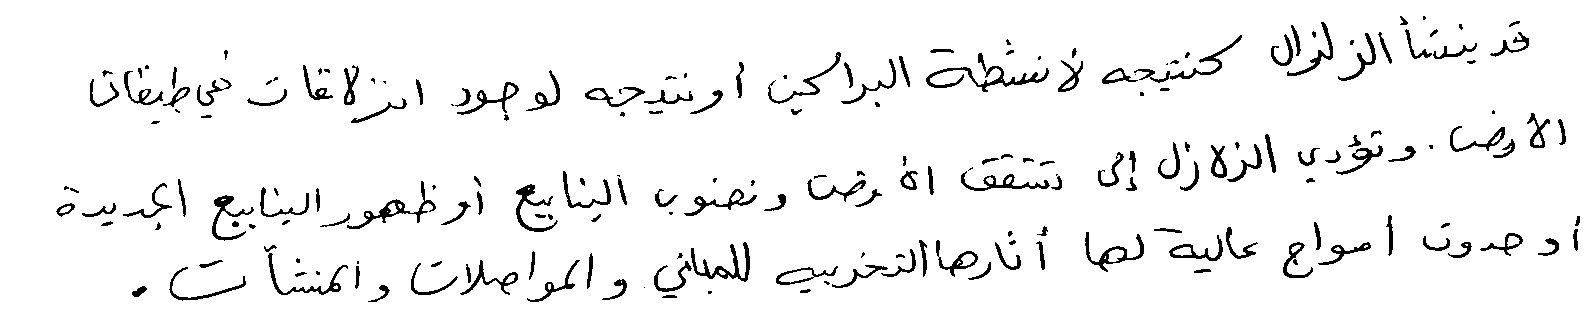 قد ينشأ الزلزال كنتيجه لأنشطة البراكين أو نتيجه لوجود انزلاقات في طبقات
الأرض. وتؤدي الزلازل إلى تشقق الأرض ونضوب الينابيع أو ظهور الينابيع الجديدة
أو حدوث أمواج عالية لها أثارها التخريبيه للمباني والمواصلات والمنشأت.